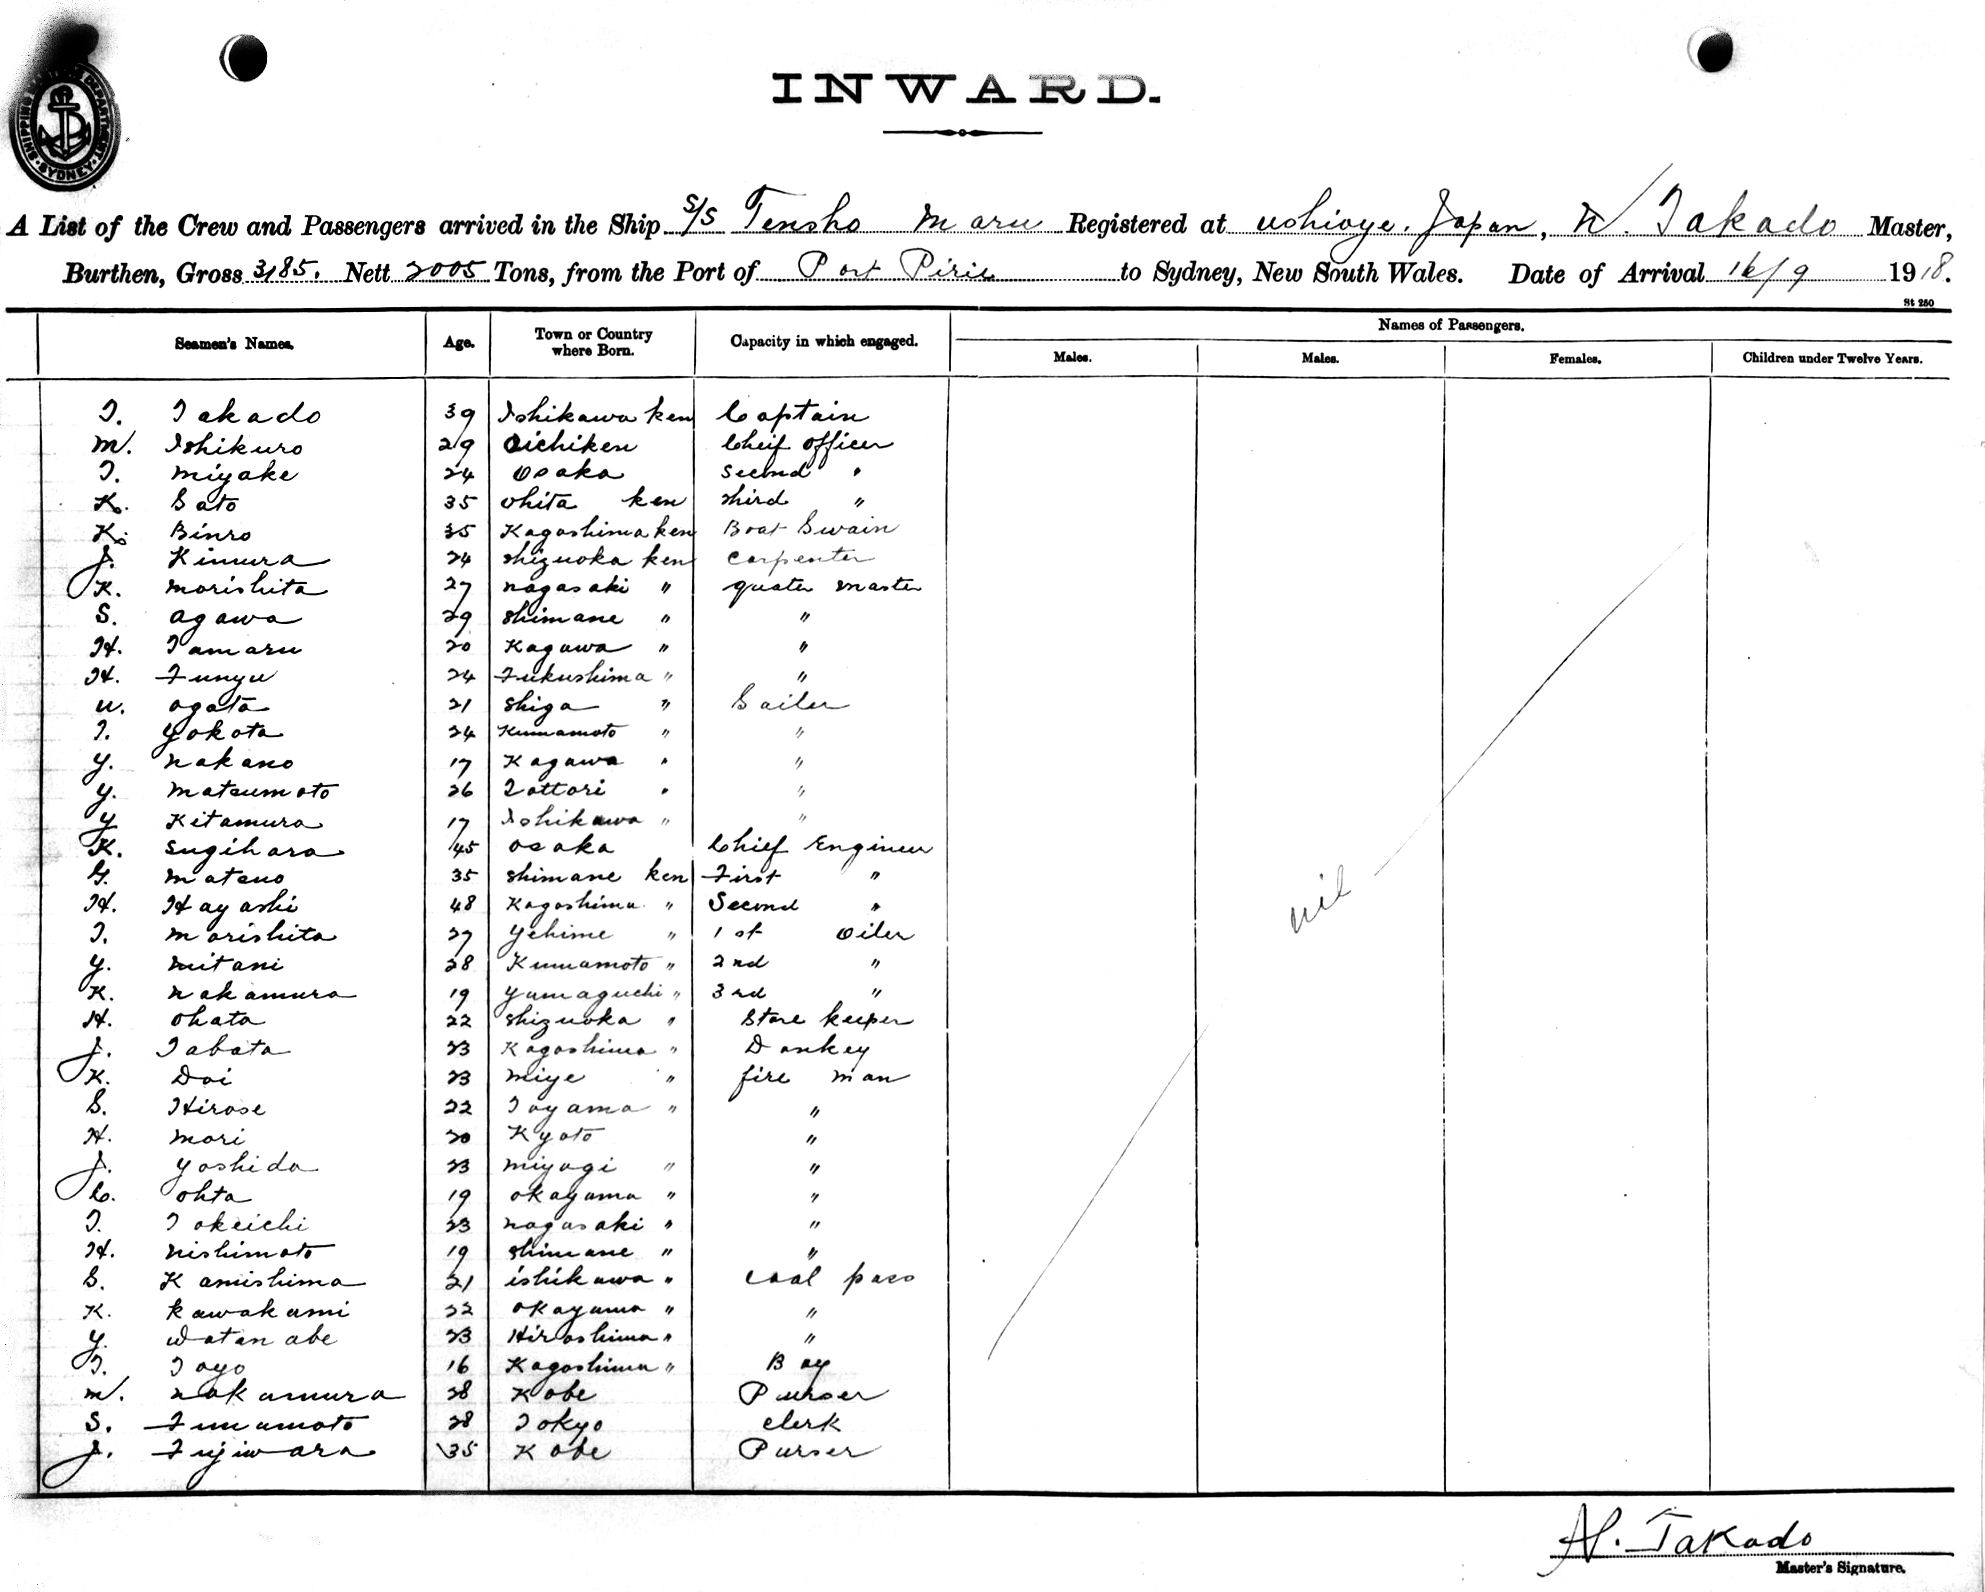 SHIPPING MASTER'S DEPARTMENT SYDNEY
INWARD.
A List of the Crew and Passengers arrived in the Ship S/S Tensho Maru Registered at ushioye. Japan, N. Takado Master,
Burthen, Gross 3185. Nett 2005 Tons, from the Port of Port Pirie to Sydney, New South Wales. Date of Arrival 16/9 1918.
St 250
Seamen's Names. Age. Town or Country where Born. Capacity in which engaged. Names of Passengers.
Males. Males. Females. Children under Twelve Years.
T. Takado 39 Ishikawa ken Captain
M. Ishikuro 29 Aichiken Cheif officer
T. Miyake 24 Osaka Second "
K. Sato 35 Ohita ken Third "
K. Binro 35 Kagoshima ken Boat Swain
J. Kimura 24 Shizuoka ken Carpenter
K. Morishita 27 Nagasaki " quater master
S. Agawa 29 Shimane " "
H. Tamaru 20 Kagawa " "
H. Funyu 24 Fukushima " "
U. Ogata 21 Shiga " Sailer
T. Yokota 24 Kumamoto " "
Y. Nakano 17 Kagawa " "
Y. Matsumoto 26 Tottori " "
Y. Kitamura 17 Ishikawa " "
K. Sugihara 45 Osaka Chief Engineer
G. Matsuo 35 Shimane ken First "
H. Hayashi 48 Kagoshima " Second "
T. Morishita 27 Yehime " 1st Oiler
Y. Mitani 28 Kumamoto " 2nd "
K. Nakamura 19 Yamaguchi " 3rd "
H. Ohata 22 Shizuoka " Store keeper
J. Tabata 23 Kagoshima " Donkey
K. Doi 23 Miye " fire man
S. Hirose 22 Toyama " "
H. Mori 20 Kyoto "
J. Yoshida 23 Miyagi " "
C. Ohta 19 Okayama " "
T. Tokeichi 23 Nagasaki " "
H. Nishimoto 19 Shimane " "
S. Kamishima 21 ishikawa " coal pass
K. Kawakami 22 Okayama " "
Y. Watanabe 23 Hiroshima " "
T. Toyo 16 Kagoshima " Boy
M. Nakamura 28 Kobe Purser
S. Fumamoto 28 Tokyo Clerk
J. Fujiwara 35 Kobe Purser
nil
N. Takado
Master's Signature.